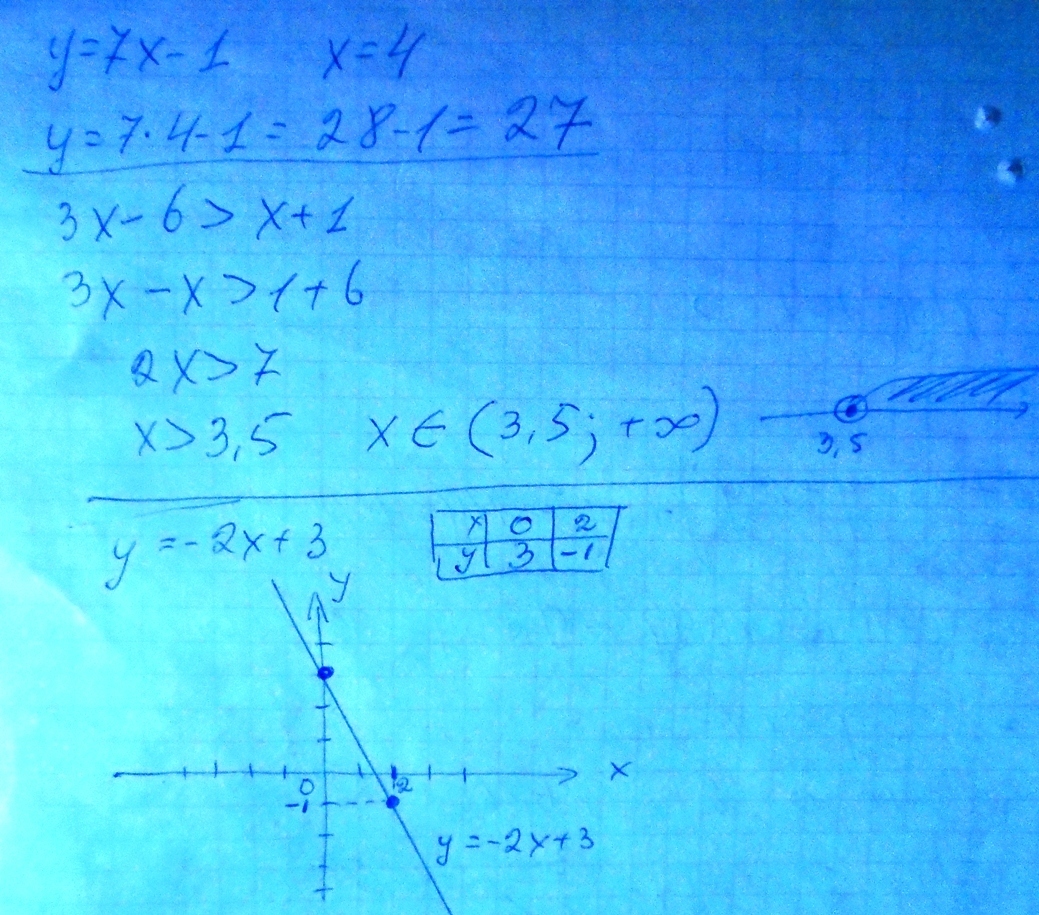 y=7x-1 x=4
y=7·4-1=28-1=27
3x-6>x+1
3x-x>1+6
2x>7
x>3,5 x∈(3,5;+∞)
3,5
y=-2x+3
x 0 2
y 3 -1
y
x
0
2
-1
y=-2x+3